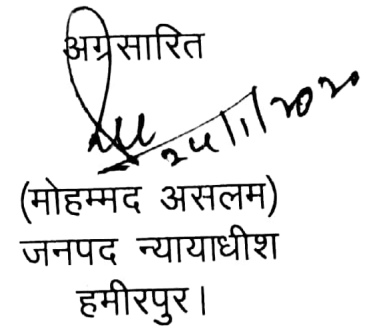 अग्रसारित
24/1/2020
(मोहम्मद असलम)
जनपद न्यायाधीश
हमीरपुर।